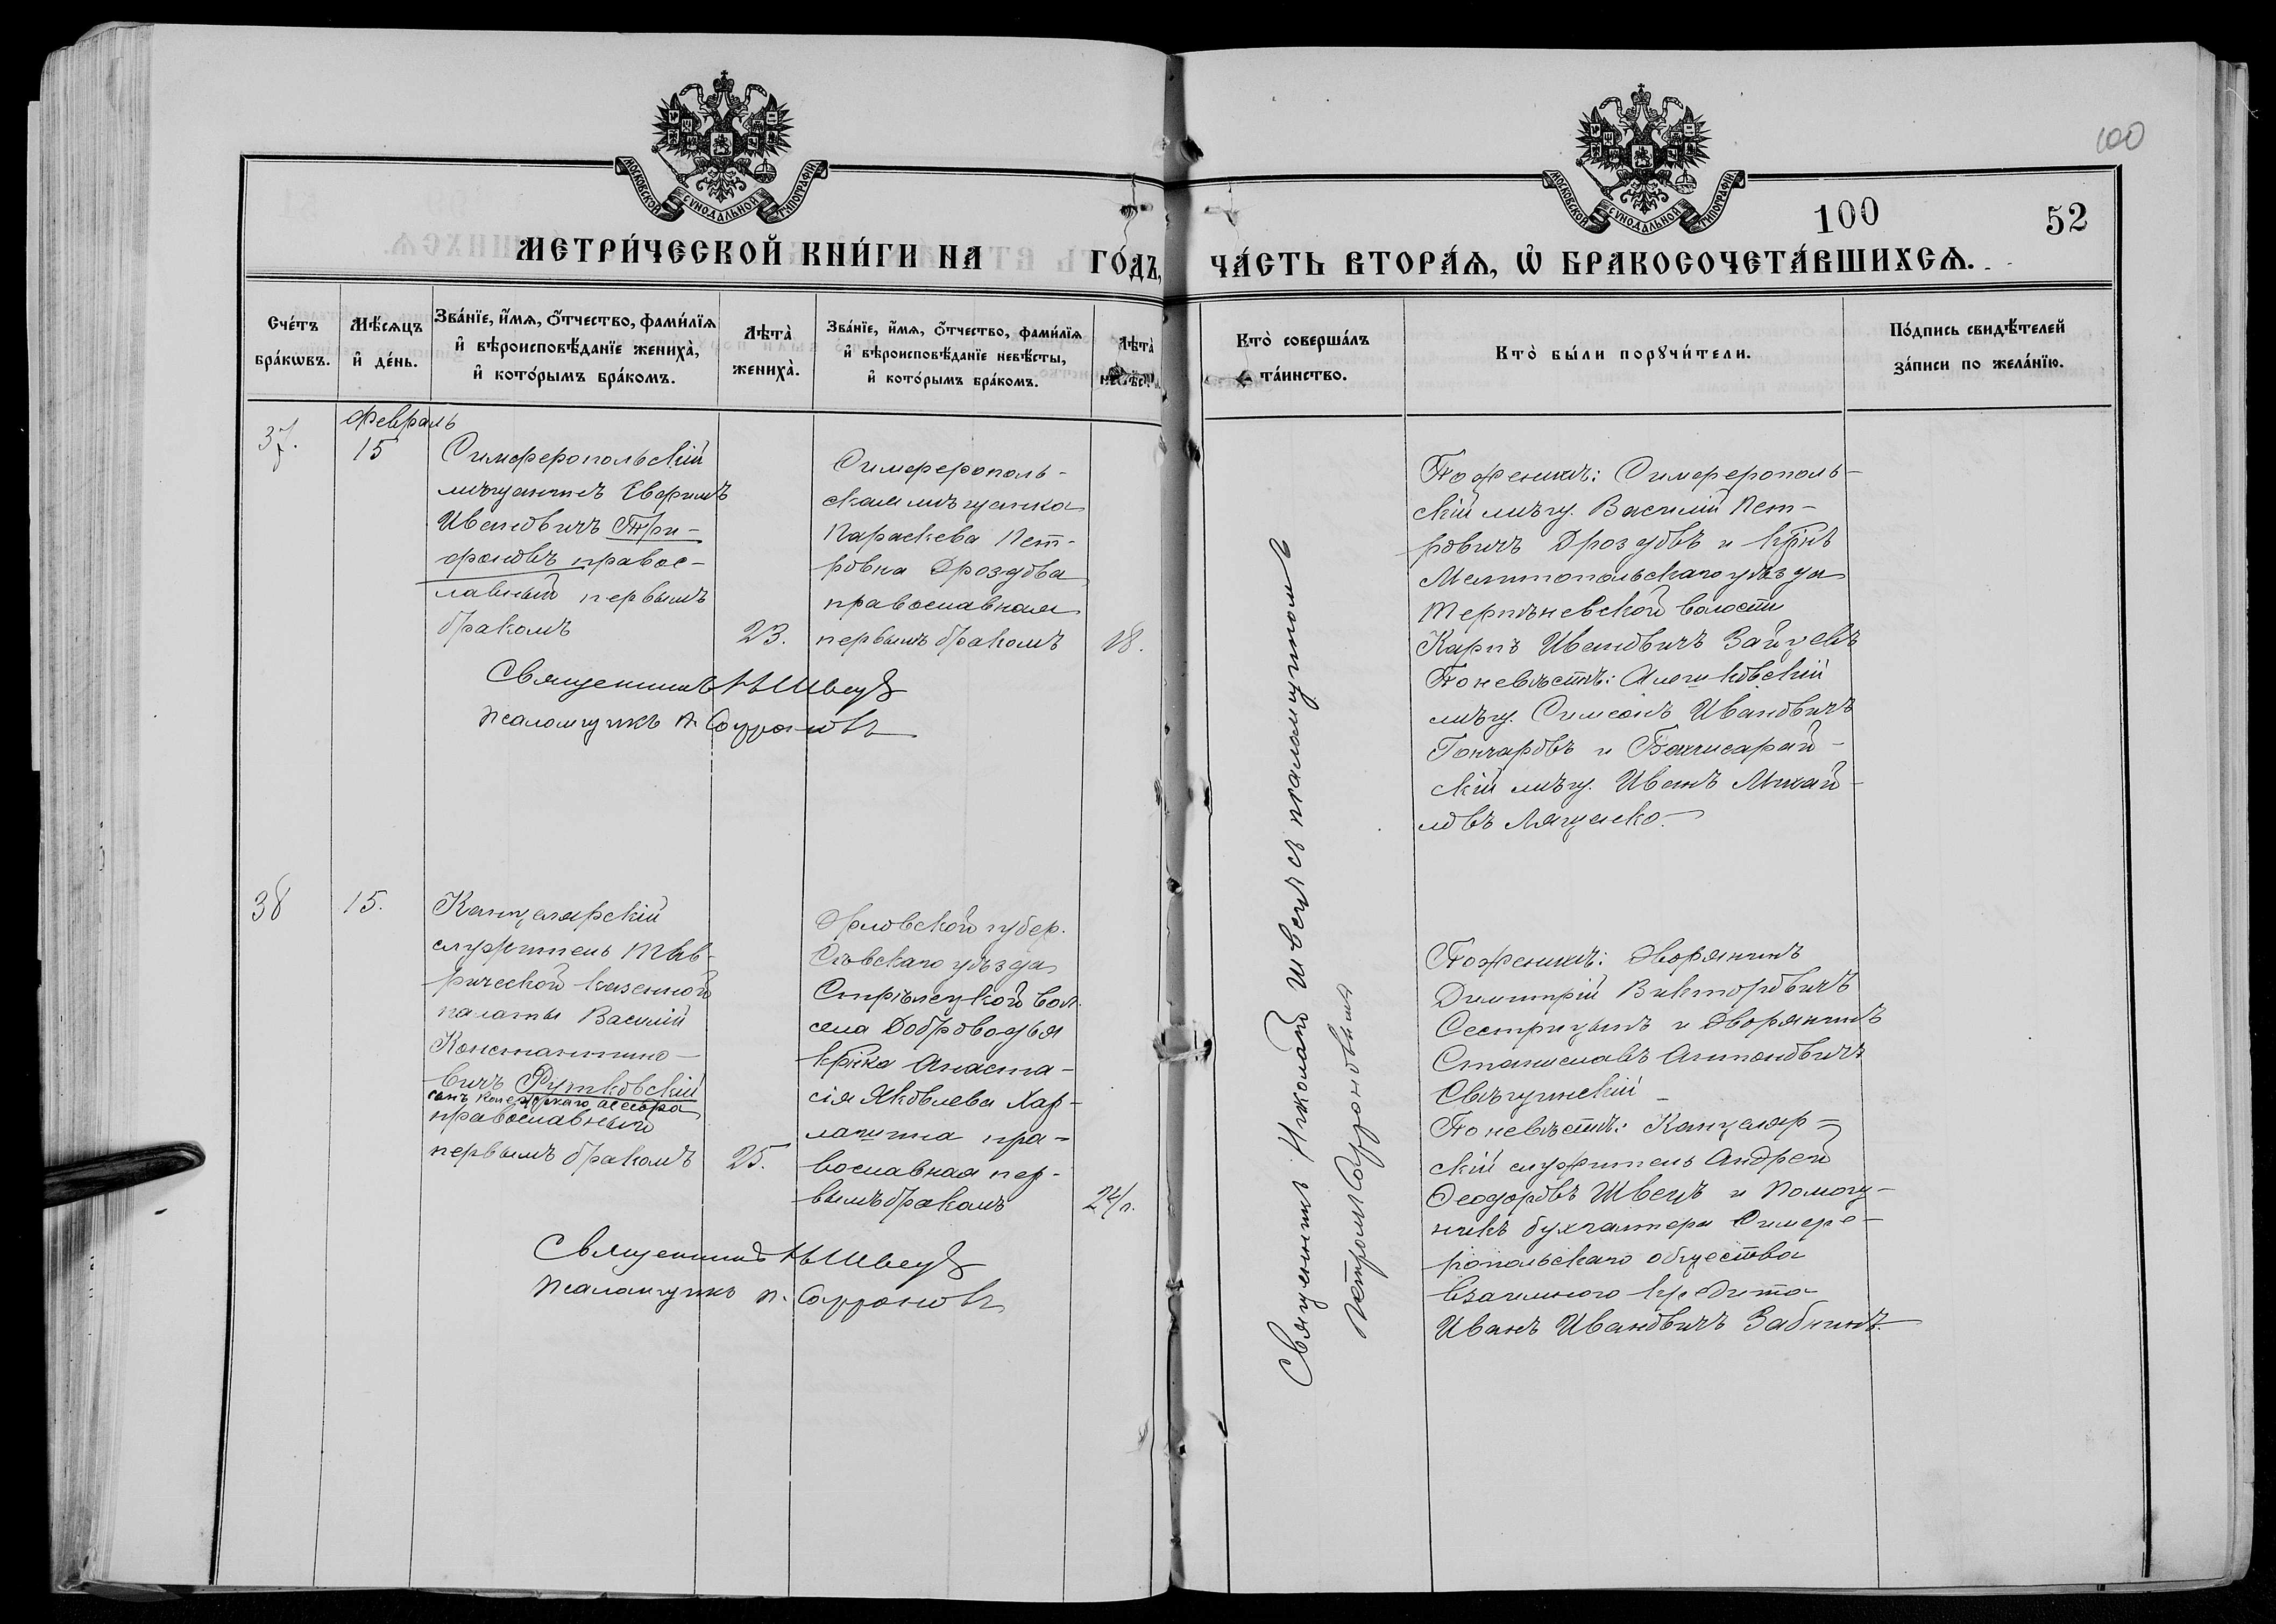 100
МОСКОВСКОЙ СУНОДАЛЬНОЙ ТИПОГРАФІИ
МОСКОВСКОЙ СУНОДАЛЬНОЙ ТИПОГРАФІИ
100
52
МЕТРИ́ЧЕСКОЙ КНИ́ГИ НА ГО́ДЪ,
ЧА́СТЬ ВТОРА́Ѧ, Ѽ БРАКОСОЧЕТА́ВШИХСѦ.
Сче́тъ бра́кѡвъ.
Мѣ́сѧцъ и҆ де́нь.
Зва́нїе, и҆́мѧ, ѻ҆́тчество, фами́лїѧ
и҆ вѣроисповѣ́данїе жениха̀,
и҆ кото́рымъ бра́комъ.
Лѣта̀ жениха̀.
Зва́нїе, и҆́мѧ, ѻ҆́тчество, фами́лїѧ
и҆ вѣроисповѣ́данїе невѣ́сты,
и҆ кото́рымъ бра́комъ.
Лѣта̀ невѣ́сты
Кто̀ соверша́лъ
та́инство.
Кто̀ бы́ли порꙋчи́тели.
По́дпись свидѣ́телей
за́писи по жела́нїю.
37.
Февраль
15
Симферопольскій
мѣщанинъ Евфимъ
Ивановичъ Три-
фоновъ правос-
лавный первымъ
бракомъ
23.
Симферополь-
ская мѣщанка
Параскева Пет-
ровна Дроздова
православная
первымъ бракомъ
18.
Священникъ Н Швецъ
Псаломщикъ П. Софроновъ
Священникъ Николай Швецъ съ псаломщикомъ
Петромъ Софроновымъ
По женихѣ: Симферополь-
скій мѣщ. Василій Пет-
ровичъ Дроздовъ и крнъ
Мелитопольскаго уѣзда
Терпѣневской волости
Карпъ Ивановичъ Зайцевъ
По невѣстѣ: Алешковскій
мѣщ. Симеонъ Ивановичъ
Гончаровъ и Бахчисарай-
скій мѣщ. Иванъ Михай-
ловъ Ляшенко.
38
15.
Канцелярскій
служитель Тав-
рической казенной
палаты Василій
Константино-
вичъ Рутковскій
сынъ колежскаго асесора
православный
первымъ бракомъ
25.
Орловской губер.
Сѣвскаго уѣзда
Стрѣлецкой вол.
села Доброводья
крнка Анаста-
сія Яковлева Хар-
лашина пра-
вославная пер-
вымъ бракомъ
24 л.
Священникъ Н Швецъ
Псаломщикъ П. Софроновъ
По женихѣ: Дворянинъ
Димитрій Викторовичъ
Сестрицынъ и Дворянинъ
Станиславъ Антоновичъ
По невѣстѣ: Канцеляр-
скій служитель Андрей
Феодоровъ Швецъ и Помощ-
никъ бухгалтера Симфе-
ропольскаго общества
взаимного кредита
Иванъ Ивановичъ Забнинъ.